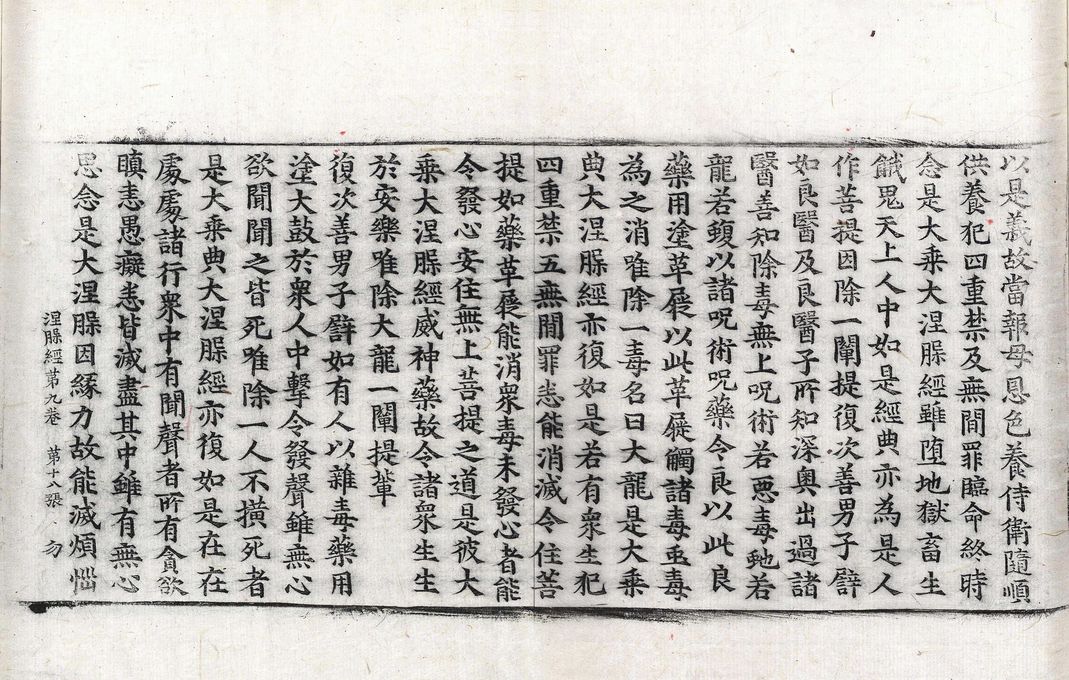 以是義故當報母恩色養侍衛隨順
供養犯四重禁及無間罪臨命終時
念是大乘大涅槃經雖墮地獄畜生
餓鬼天上人中如是經典亦為是人
作菩提因除一闡提復次善男子譬
如良醫及良醫子所知深奧出過諸
醫善知除毒無上呪術若惡毒虵若
龍若蝮以諸呪術呪藥令良以此良
藥用塗革屣以此革屣觸諸毒虫毒
為之消唯除一毒名曰大龍是大乘
典大涅槃經亦復如是若有衆生犯
四重禁五無間罪悉能消滅令住菩
提如藥革屣能消衆毒未發心者能
令發心安住無上菩提之道是彼大
乘大涅槃經威神藥故令諸衆生生
於安樂唯除大龍一闡提輩
復次善男子譬如有人以雜毒藥用
塗大鼓於衆人中擊令發聲雖無心
欲聞聞之皆死唯除一人不橫死者
是大乘典大涅槃經亦復如是在在
處處諸行衆中有聞聲者所有貪欲
瞋恚愚癡悉皆滅盡其中雖有無心
思念是大涅槃因緣力故能滅煩惱
涅槃經第九卷 第十八張 勿